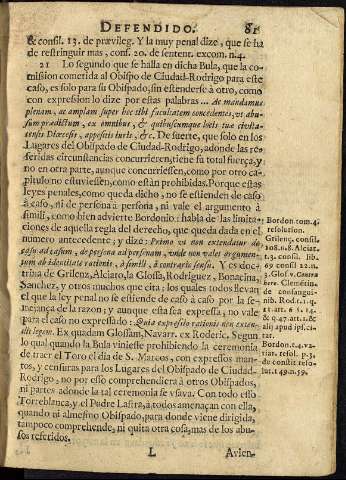 DEFENDIDO. 81
& consil. 13. de prævileg. Y la muy penal dize, que se ha
de restringuir mas, cons. 20. de sentent. excom. n. 4.
21 Lo segundo que se halla en dicha Bula, que la co-
mission cometida al Obispo de Ciudad-Rodrigo para este
caso, es solo para su Obispado, sin estenderse à otro, como
con expression lo dize por estas palabras ... de mandamus
plenam, ac amplam super hoc tibi facultatem concedentes, vt abu-
sum prædictum, ex omnibus, & quibuscumque locis tuæ civita-
tensis Diœcesis, appositis iuris, &c. De suerte, que solo en los
Lugares del Obispado de Ciudad-Rodrigo, adonde las re-
feridas circunstancias concurrieren, tiene su total fuerça, y
no en otra parte, aunque concurriessen, como por otro ca-
pitulo no estuviessen, como estàn prohibidas. Porque estas
leyes penales, como queda dicho, no se estienden de caso
à caso, ni de persona à persona, ni vale el argumento à
simili, como bien advierte Bordonio: habla de las limita-
ciones de aquella regla del derecho, que queda dada en el
numero antecedente; y dize: Primo vt non extendatur de
casu ad casum, de persona ad personam, vnde non valet argumen-
tum de identitate rationis, à simili, à contrario sensu. Y es doc-
trina de Grilenz, Alciaro, la Glossa, Rodriguez, Bonacina,
Sanchez, y otros muchos que cita: los quales todos llevan
el que la ley penal no se estiende de caso à caso por la se-
mejança de la razon; y aunque esta sea expressa, no vale
para el caso no expressado: Quia expressio rationis non exten-
dit legem. Ex quadam Glossa in, Navarr. ex Roderic. Segun
lo qual quando la Bula viniesse prohibiendo la ceremonia
de traer el Toro el dia de S. Marcos, con expressos man-
tos, y censuras para los Lugares del Obispado de Ciudad-
Rodrigo, no por esso comprehendiera à otros Obispados,
ni partes adonde la tal ceremonia se vsava. Con todo esso
Torreblanca, y el Padre Lasira, à todos amenaçan con ella,
quando ni al mesmo Obispado, para donde viene dirigida,
tampoco comprehende, ni quita otra cosa, mas de los abu-
sos referidos.
L Avien-
Bordon. tom. 4.
resolution.
Grilenç. consil.
108. n. 8. Alciat.
t. 3. consil. lib.
69 consil 22. n.
2. Glos. v. Guerra
here. Clementina.
de consangui-
nib. Rod. t. 2. q.
21. art. 6 & 15.
& q. 47. art. 2. &
alij apud ips. ci-
tat.
Bordon. t. 4. va-
riat. resol. p. 3.
de constit. reso-
lut. 149. n. 59.